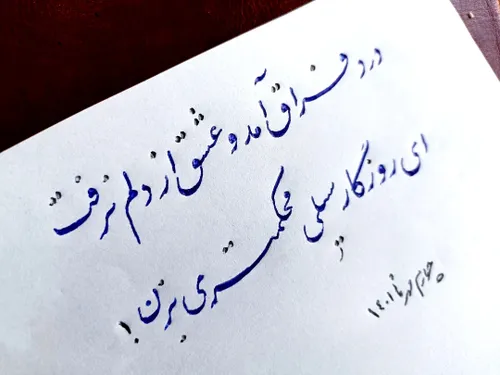 درد فراق آمد و عشق از دلم نرفت
ای روزگار سیلی محکمتری بزن!
۱۴۰۱